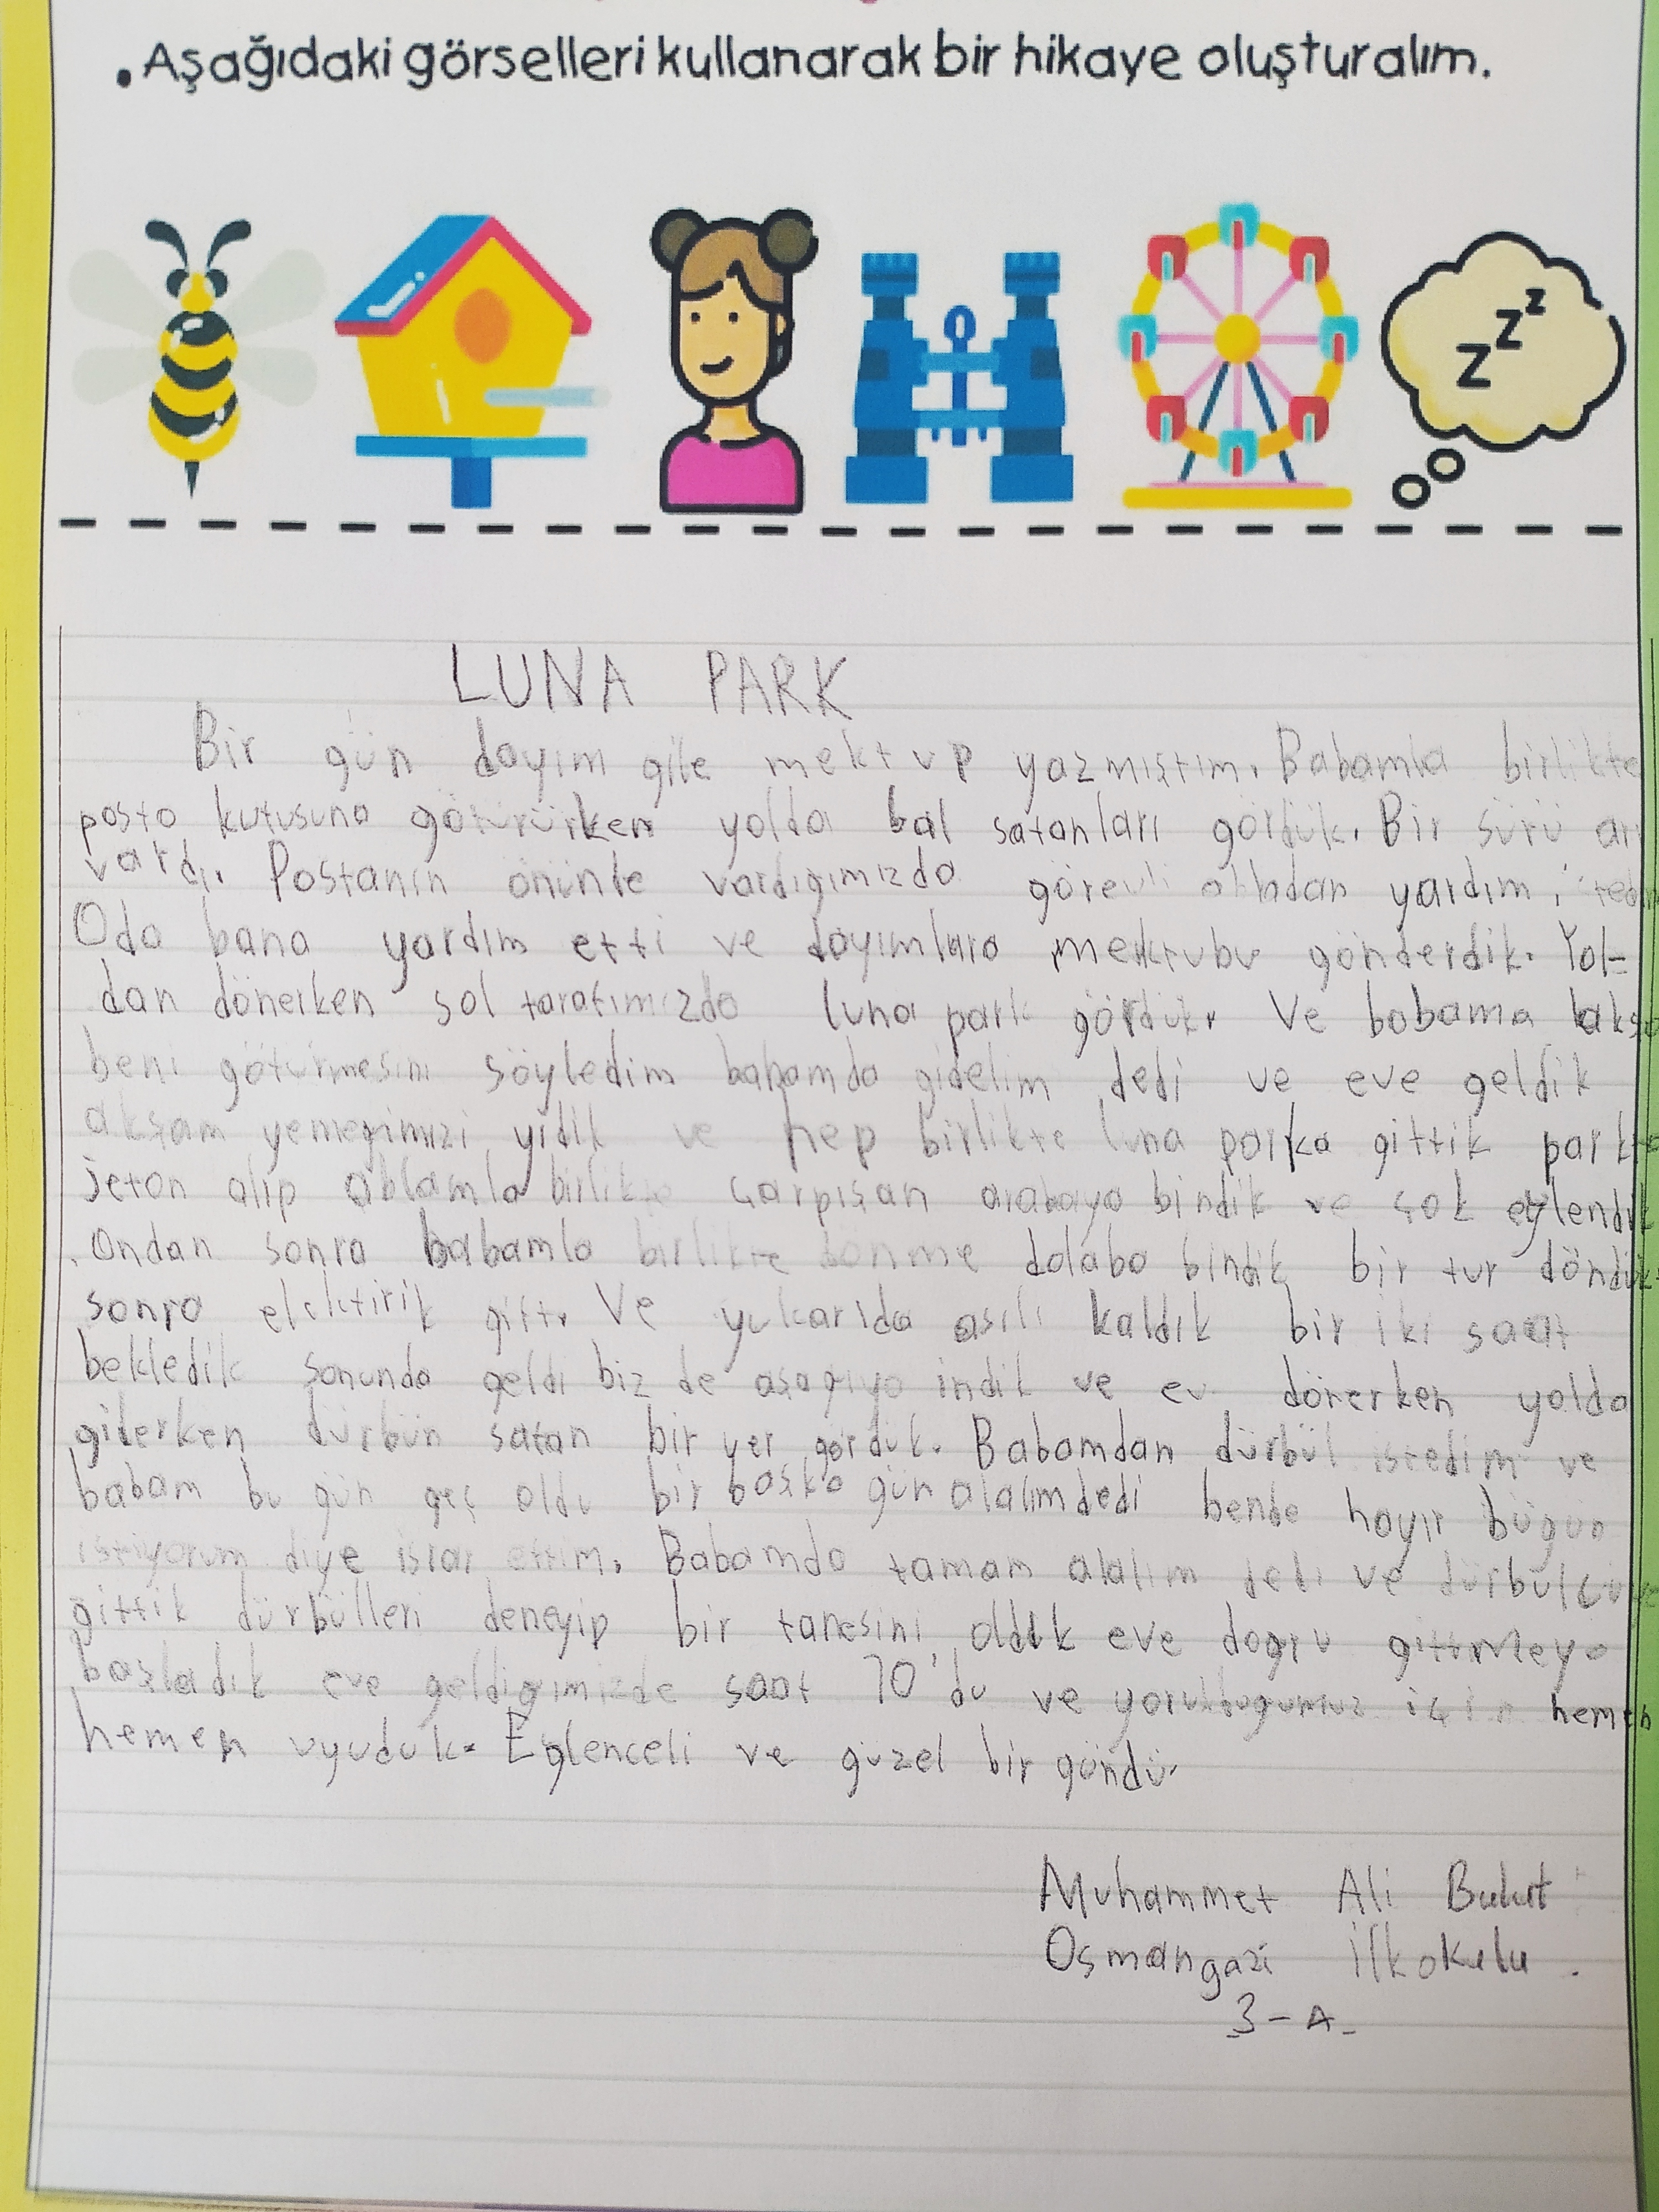 . Aşağıdaki görselleri kullanarak bir hikaye oluşturalım.
z z z
LUNA PARK
Bir gün dayım gile mektup yazmıştım. Babamla birlikte
posta kutusuna götürürken yolda bal satanları gördük. Bir sürü arı
vardı. Postanın öninde vardıgımızda görevli abladan yardım
Oda bana yardım etti ve dayımlara mektubu gönderdik. Yol-
dan dönerken sol tarafımızda luna park gördük. Ve babama
beni götürmesini söyledim babamda gidelim dedi ve eve geldik
aksam yemegimizi yidik ve hep birlikte luna parka gittik
jeton alıp ablamla birlikte çarpışan arabaya bindik ve çok eylendik
. Ondan sonra babamla birlikte dönme dolaba bindik bir tur döndük
sonra elektirik gitti. Ve yukarıda asılı kaldık bir iki saat
bekledik sonunda geldi biz de aşagıya indik ve ev dönerken yolda
giderken dürbün satan bir yer gördük. Babamdan dürbül istedim ve
babam bu gün geç oldu bir başka gün alalım dedi bende hayır bügün
istiyorum diye israr ettim. Babamda tamam alalım dedi ve
gittik dürbülleri deneyip bir tanesini aldık eve dogru gitmeye
başladık eve geldigimizde saat 10'du ve yoruldugumuz için hemen
hemen uyuduk. Eglenceli ve güzel bir gündü.
Muhammet Ali Bulut
Osmangazi İlkokulu.
3-A